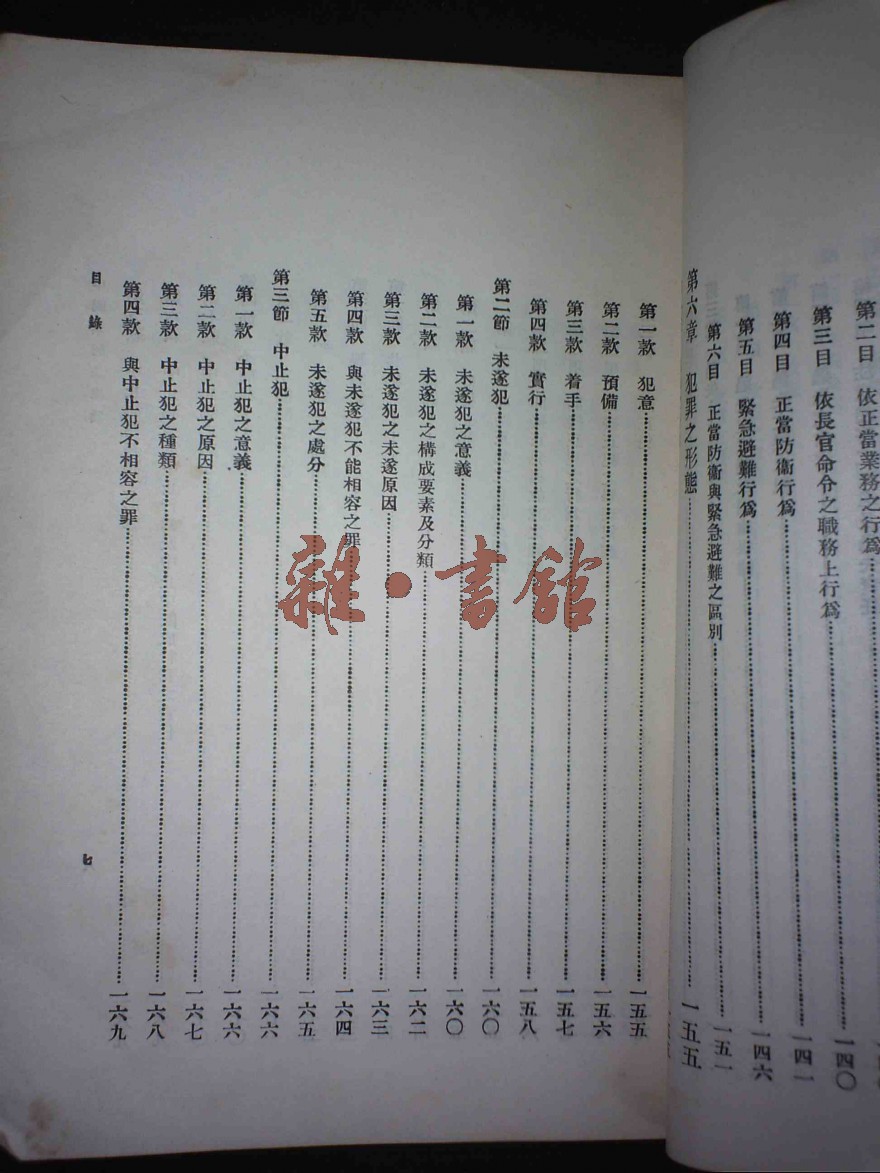 第二目 依正當業務之行爲
第三目 依長官命令之職務上行爲 一四〇
第四目 正當防衞行爲 一四一
第五目 緊急避難行爲 一四六
第六目 正當防衞與緊急避難之區別 一五一
第六章 犯罪之形態 一五五
第一款 犯意 一五五
第二款 預備 一五六
第三款 着手 一五七
第四款 實行 一五八
第二節 未遂犯 一六〇
第一款 未遂犯之意義 一六〇
第二款 未遂犯之構成要素及分類 一六二
第三款 未遂犯之未遂原因 一六三
第四款 與未遂犯不能相容之罪 一六四
第五款 未遂犯之處分 一六五
第三節 中止犯 一六六
第一款 中止犯之意義 一六六
第二款 中止犯之原因 一六七
第三款 中止犯之種類 一六八
第四款 與中止犯不相容之罪 一六九
目錄
七
雜·書館